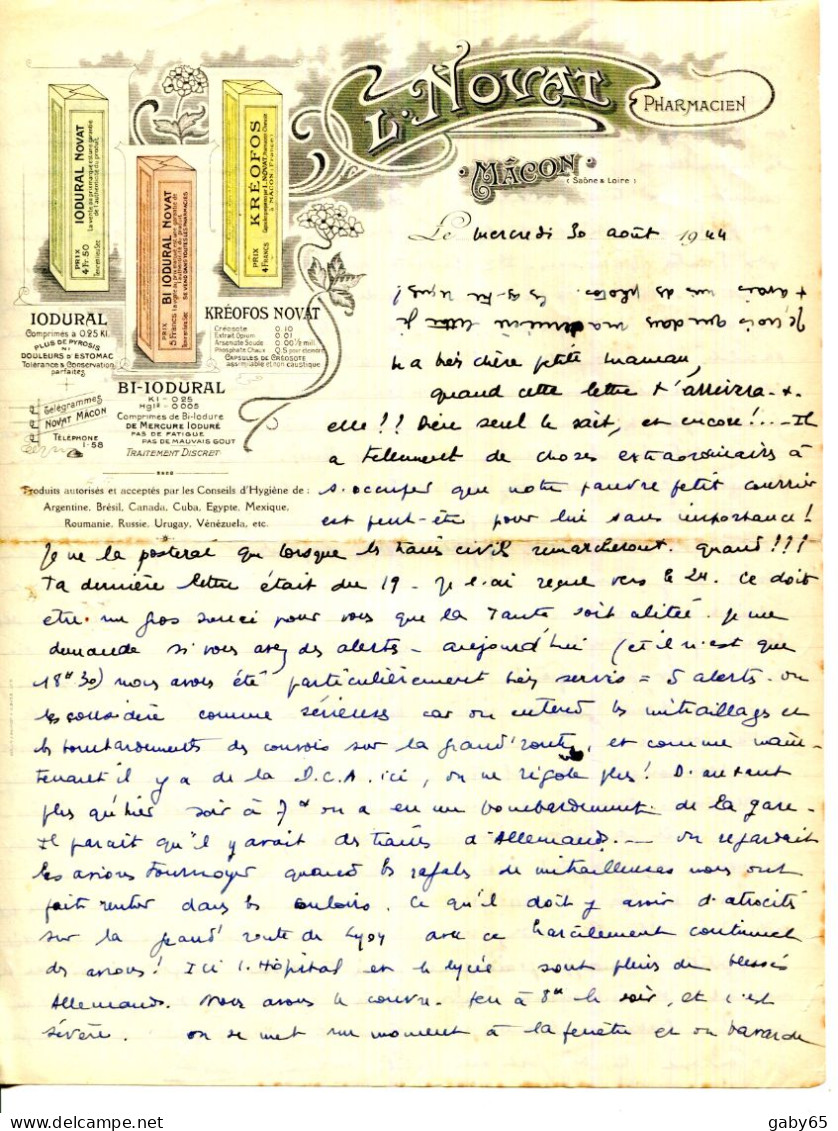 L. NOVAT
PHARMACIEN
MÂCON
(Saône & Loire)
IODURAL NOVAT
La vente au prix marqué est une garantie
de l'authenticité du produit.
PRIX
4 Fr 50
BI IODURAL NOVAT
SE VEND DANS TOUTES LES PHARMACIES
PRIX
5 Francs
KRÉOFOS
PRIX
4 FRANCS
IODURAL
Comprimés à 0.25 KI.
PLUS DE PYROSIS
NI
DOULEURS D'ESTOMAC
Tolérance & Conservation
parfaites
KRÉOFOS NOVAT
Créosote 0.10
Extrait Opium 0.01
Arseniate Soude 0.00½ mill
Phosphate Chaux Q.S pour 1 combiné
CAPSULES DE CRÉOSOTE
assimilable et non caustique
BI-IODURAL
KI - 0.25
HgI² - 0.005
Comprimés de Bi-Iodure
DE MERCURE IODURÉ
PAS DE FATIGUE
PAS DE MAUVAIS GOUT
TRAITEMENT DISCRET
Télégrammes
NOVAT MÂCON
TÉLÉPHONE
1-58
Produits autorisés et acceptés par les Conseils d'Hygiène de :
Argentine, Brésil, Canada, Cuba, Egypte, Mexique,
Roumanie, Russie, Urugay, Vénézuela, etc.
Le mercredi 30 août 1944
Je crois que dans ma dernière lettre je
t'avais mis des photos.
Ma très chère petite maman,
quand cette lettre t'arrivera-t-
elle !! Dieu seul le sait, et encore !... Il
a tellement de choses extraordinaires à
s'occuper que notre pauvre petit courrier
est peut-être pour lui sans importance !
Je ne la posterai que lorsque les trains civils remarcheront. quand !!!
Ta dernière lettre était du 19 - je l'ai reçue vers le 24. Ce doit
être un gros souci pour vous que la Tante soit alitée. Je me
demande si vous avez des alertes - aujourd'hui (et il n'est que
18h 30) nous avons été particulièrement bien servis = 5 alertes. on
les considère comme sérieuses car on entend les mitraillages et
les bombardements des convois sur la grand'route, et comme main-
tenant il y a de la D.C.A. ici, on ne rigole plus ! D'autant
plus qu'hier soir à 7h on a eu un bombardement de la gare -
Il parait qu'il y avait des trains d'Allemands. -- on regardait
les avions tournoyer quand les rafales de mitrailleuses nous ont
fait rentrer dans les couloirs. Ce qu'il doit y avoir d'atrocités
sur la grand'route de Lyon avec ce harcèlement continuel
des avions ! Ici l'Hôpital et le lycée sont pleins de blessés
Allemands. Nous avons le couvre-feu à 8h le soir, et c'est
sévère. on se met un moment à la fenêtre et on bavarde
gaby65